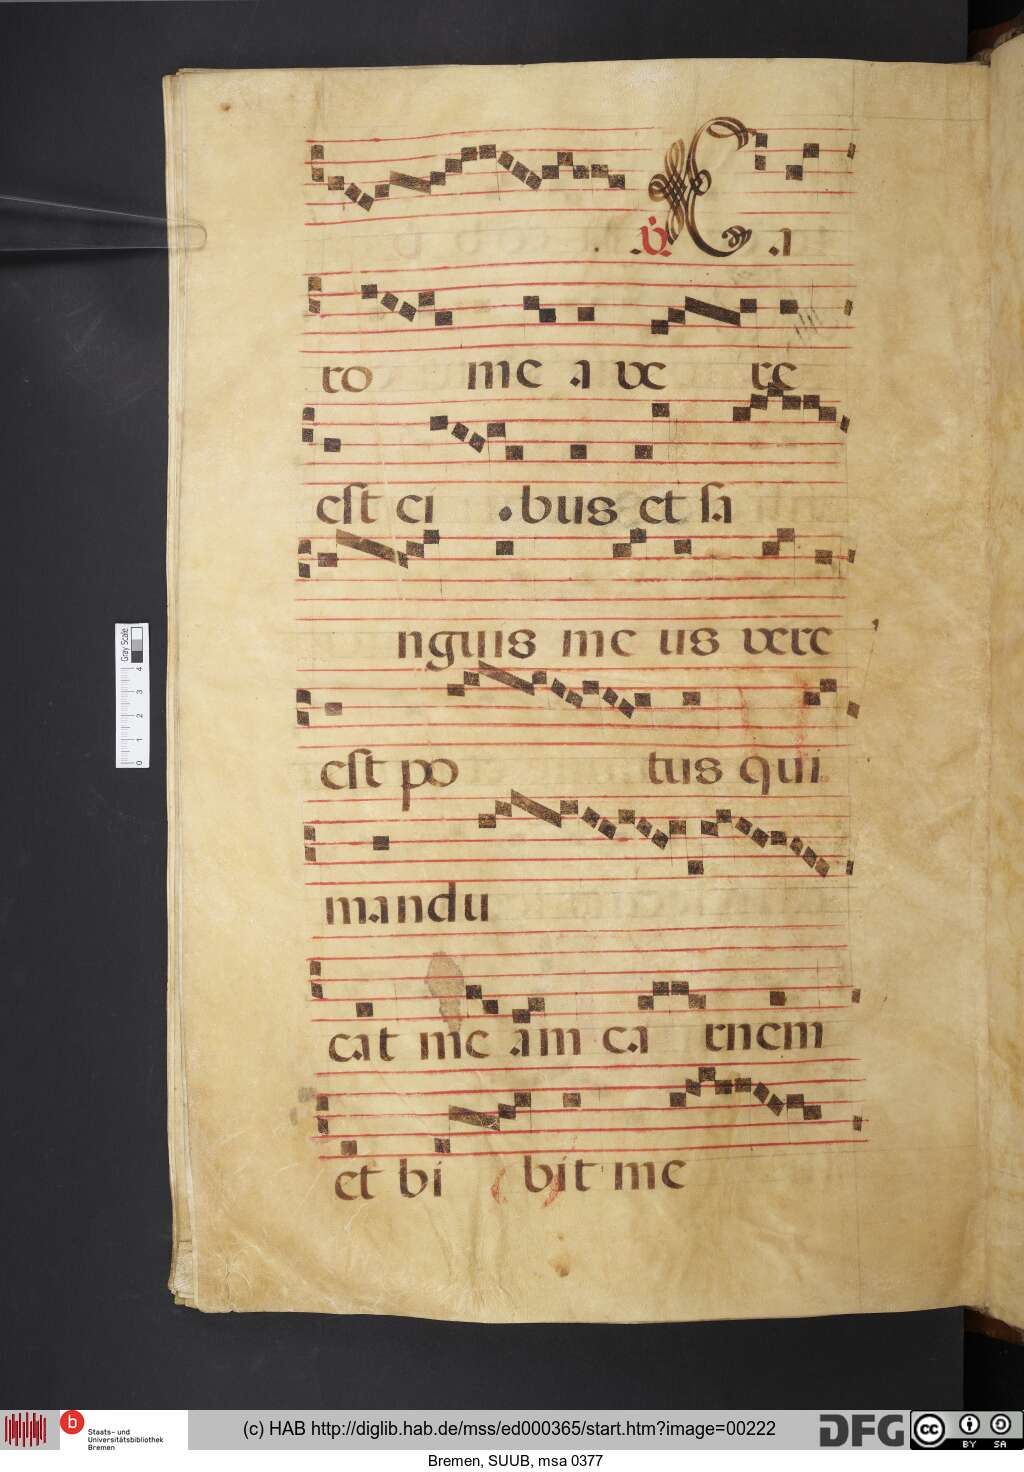 ℣ C a
ro me a ve re
est ci bus et sa
nguis me us vere
est po tus qui
mandu
cat me am ca rnem
et bi bit me
Gray Scale
4
3
2
1
0
b
Staats- und
Universitätsbibliothek
Bremen
(c) HAB http://diglib.hab.de/mss/ed000365/start.htm?image=00222
DFG
cc BY SA
Bremen, SUUB, msa 0377